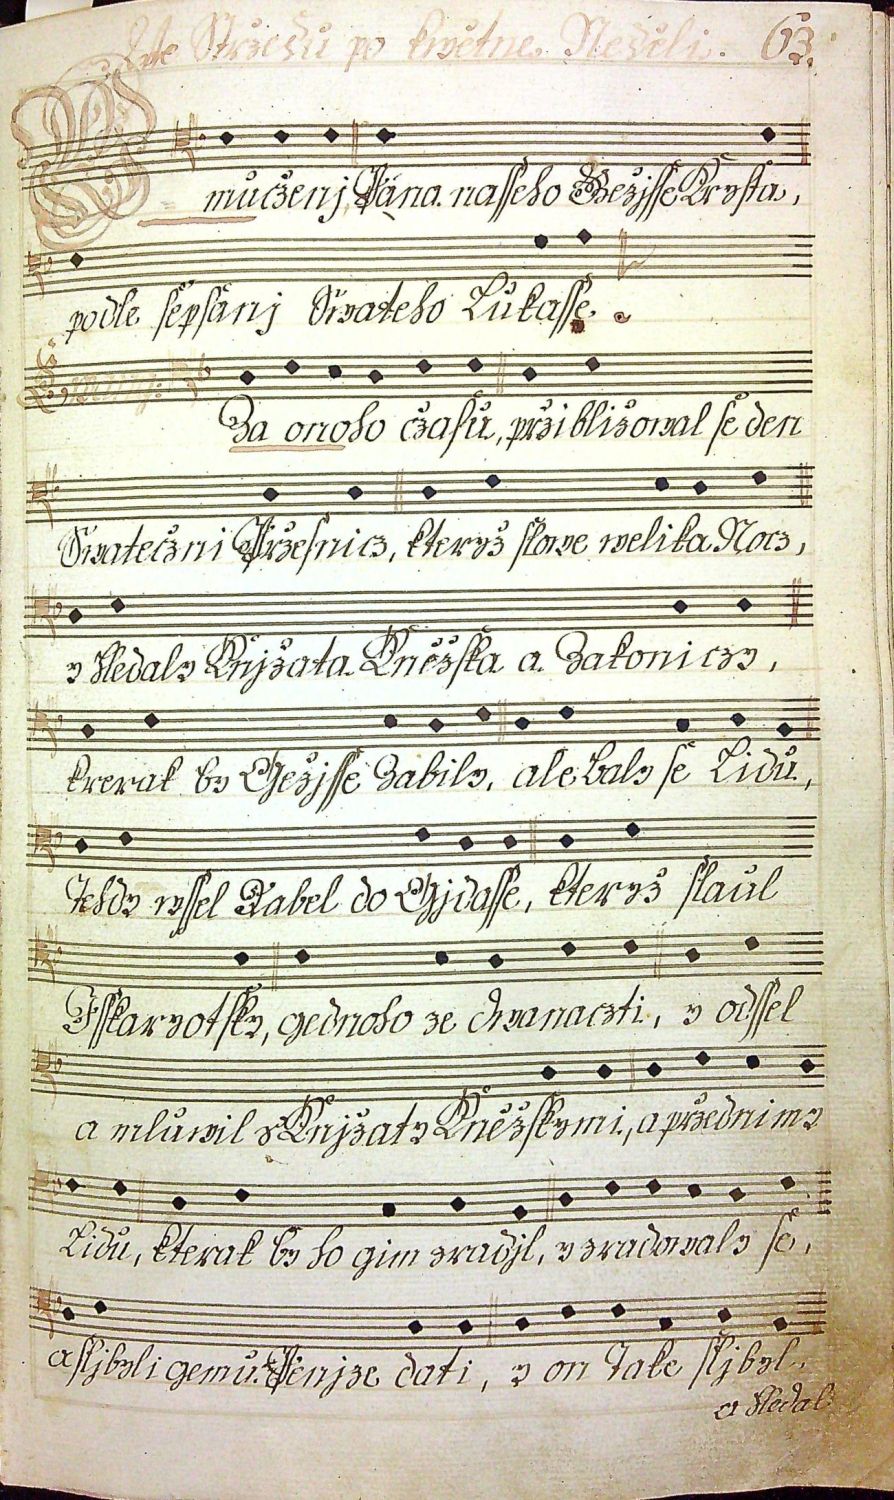 we Strzedu po kwětne Neděli. 63.
mučzenj Pána nasseho Gezjsse Krysta,
podle sepsanj Swateho Lukasse.
Za onoho cžasu, przibližowal se den
Swatecžni Przesnicz, kteryž slowe welika Nocz,
y hledaly Knjžata Kněžska a Zakoniczy,
kterak by Gežjsse Zabily, ale baly se Lidu,
Tehdy wssel Dabel do Gjdasse, kteryž slaul
Isskaryotsky, gednoho ze dwanaczti, y odssel
a mluwil z Knjžaty Kněžskymi, a przednimy
Lidu, kterak by ho gim zradjl, y zradowaly se,
a sljbyli gemu Penjze dati, y on Take sljbyl.
a hledal